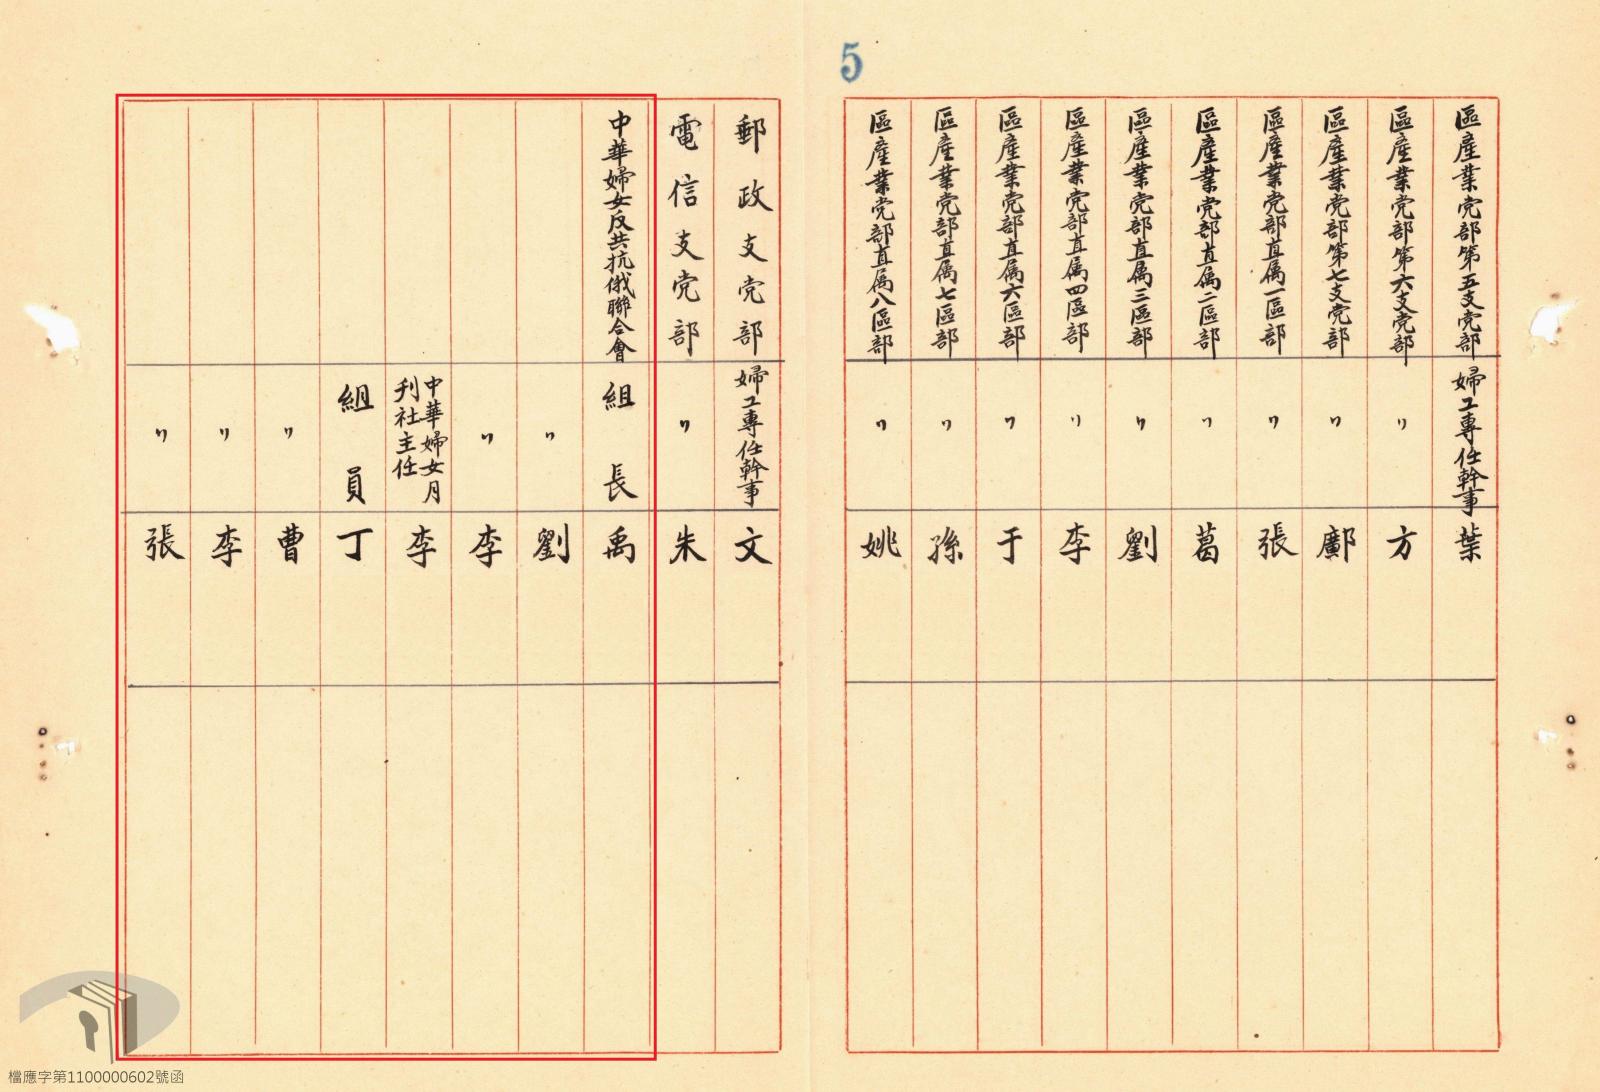 5
區產業党部第五支党部 婦工專任幹事 葉
區產業党部第六支党部 〃 方
區產業党部第七支党部 〃 鄺
區產業党部直属一區部 〃 張
區產業党部直属二區部 〃 葛
區產業党部直属三區部 〃 劉
區產業党部直属四區部 〃 李
區產業党部直属六區部 〃 于
區產業党部直属七區部 〃 孫
區產業党部直属八區部 〃 姚
郵政支党部 婦工專任幹事 文
電信支党部 〃 朱
中華婦女反共抗俄聯合會 組長 禹
〃 劉
〃 李
中華婦女月刊社主任 李
組員 丁
〃 曹
〃 李
〃 張
檔應字第1100000602號函